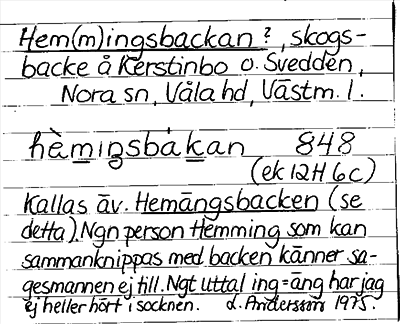 Hem(m)ingsbackan?, skogs-
backe å Kerstinbo o. Svedden,
Nora sn, Våla hd, Västm. l.
hèmiŋsbákan 848
(ek 12H 6c)
Kallas äv. Hemängsbacken (se
detta). Ngn person Hemming som kan
sammanknippas med backen känner sa-
gesmannen ej till. Ngt uttal ing=äng har jag
ej heller hört i socknen. L. Andersson 1975.